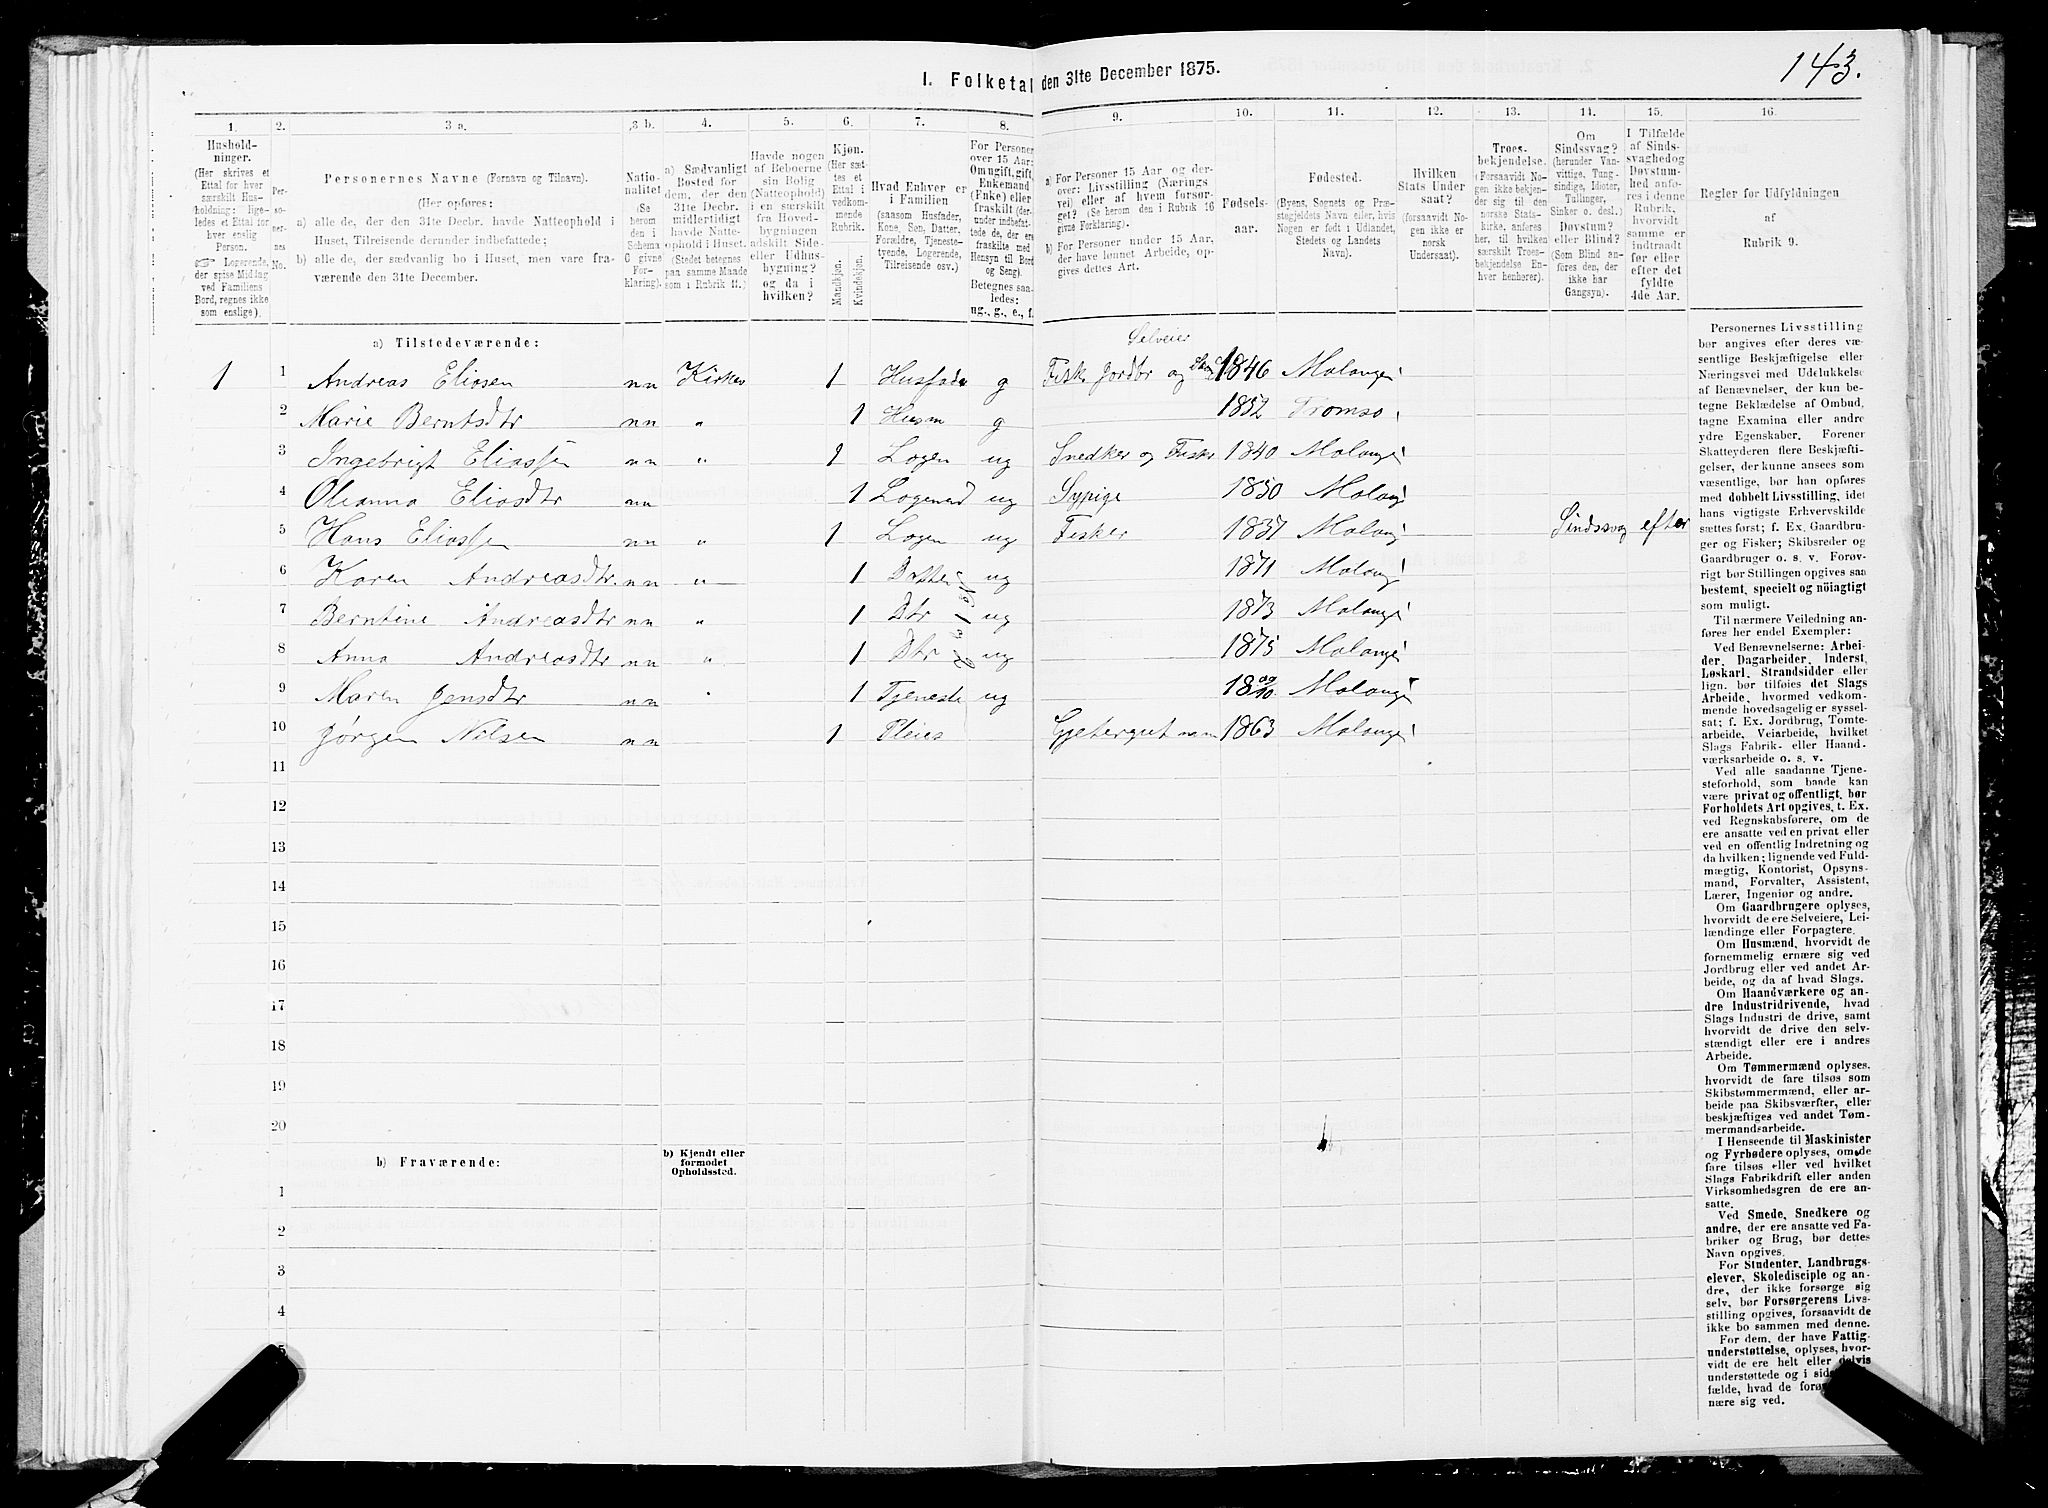 143.
I. Folketal den 31te December 1875.
1. 2. 3 a. 3 b. 4. 5. 6. 7. 8. 9. 10. 11. 12. 13. 14. 15. 16.
Hushold-
ninger.
(Her skrives et
Ettal for hver
særskilt Hus-
holdning; lige-
ledes et Ettal for
hver enslig
Person.
☞ Logerende,
der spise Middag
ved Familiens
Bord, regnes ikke
som enslige).
Per-
so-
ner-
nes
No.
Personernes Navne (Fornavn og Tilnavn).
(Her opføres:
a) alle de, der den 31te Decbr. havde Natteophold i
Huset, Tilreisende derunder indbefattede;
b) alle de, der sædvanlig bo i Huset, men vare fra-
værende den 31te December.
Natio-
nalitet
(Se
herom
den i
Schema
G givne
For-
klaring).
a) Sædvanligt
Bosted for
dem, der den
31te Decbr.
midlertidigt
havde Natte-
ophold i Huset.
(Stedet betegnes
paa samme Maade
som i Rubrik 11.)
Havde nogen
af Beboerne
sin Bolig
(Natteophold)
i en særskilt
fra Hoved-
bygningen
adskilt Side-
eller Udhus-
bygning?
og da i
hvilken?
Kjøn.
(Her sæt-
tes et
Ettal i
vedkom-
mende
Rubrik.
Mandkjøn.
Kvindekjøn.
Hvad Enhver er
i Familien
(saasom Husfader,
Kone, Søn, Datter,
Forældre, Tjeneste-
tyende, Logerende,
Tilreisende osv.)
For Personer
over 15 Aar:
Om ugift, gift,
Enkemand
(Enke) eller
fraskilt (der-
under indbefat-
tede, de, der ere
fraskilte med
Hensyn til Bord
og Seng).
Betegnes saa-
ledes:
ug., g., e., f.
a) For Personer 15 Aar og der-
over: Livsstilling (Nærings
vei) eller af hvem forsør-
get? (Se herom de i Rubrik 16
givne Forklaring).
b) For Personer under 15 Aar,
der have lønnet Arbeide, op-
gives dettes Art.
Fødsels-
aar.
Fødested.
(Byens, Sognets og Præ-
stegjeldets Navn eller, hvis
Nogen er født i Udlandet,
Stedets og Landets
Navn).
Hvilken
Stats Under
saat?
(forsaavidt No-
gen ikke er
norsk
Undersaat).
Troes-
bekjendelse.
(Forsaavidt No-
gen ikke bekjen-
der sig til den
norske Stats-
kirke, anføres
her, til hvilken
særskilt Troes-
bekjendelse En-
hver henhører).
Om
Sindssvag?
(herunder Van-
vittige, Tung-
sindige, Idioter,
Tullinger,
Sinker o. desl.)
Døvstum?
eller Blind?
(Som Blind an-
føres den, der
ikke har
Gangsyn).
I Tilfælde
af Sinds-
svaghed og
Døvstum-
hed anfø-
res i denne
Rubrik,
hvorvidt
samme er
indtraadt
før eller
efter det
fyldte
4de Aar.
Regler for Udfyldningen
af
Rubrik 9.
a) Tilstedeværende:
Selveier
1 1 Andreas Eliasen nn Kirkes 1 Husfader g Fisk. Jordbr og 1846 Malangen
2 Marie Berntsdtr nn „ 1 Husm g 1852 Tromsø
3 Ingebrigt Eliassen nn „ 1 Logen ug Snedker og Fisker 1840 Malangen
4 Olianna Eliasdtr nn 1 Logerend ug Sypige 1850 Malang
5 Hans Eliassen nn „ 1 Logen ug Fisker 1837 Malang Sindssvag efter
6 Karen Andreasdtr. nn „ 1 Datter ug 1871 Malang
7 Berntine Andreasdtr nn „ 1 Dtr ug 1873 Malangen
8 Anna Andreasdtr nn „ 1 Dtr ug 1875 Malangen
9 Maren Jensdtr nn 1 Tjeneste ug Malangen
10 Jørgen Nilsen nn 1 Pleies Gjetergut 1863 Malangen
11
12
13
14
15
16
17
18
19
20
b) Fraværende:
b) Kjendt eller
formodet
Opholdssted.
1
2
3
4
5
Personernes Livsstilling
bør angives efter deres væ-
sentlige Beskjæftigelse eller
Næringsvei med Udelukkelse
af Benævnelser, der kun be-
tegne Beklædelse af Ombud,
tagne Examina eller andre
ydre Egenskaber. Forener
Skatteyderen flere Beskjæfti-
gelser, der kunne ansees som
væsentlige, bør han opføres
med dobbelt Livsstilling, idet
hans vigtigste Erhvervskilde
sættes først; f. Ex. Gaardbru-
ger og Fisker; Skibsreder og
Gaardbruger o. s. v. Forøv-
rigt bør Stillingen opgives saa
bestemt, specielt og nöiagtigt
som muligt.
Til nærmere Veiledning an-
føres her endel Exempler:
Ved Benævnelserne: Arbei-
der, Dagarbeider, Inderst,
Løskarl, Strandsidder eller
lign. bør tilføies det Slags
Arbeide, hvormed vedkom-
mende hovedsagelig er syssel-
sat; f. Ex. Jordbrug, Tomte-
arbeide, Veiarbeide, hvilket
Slags Fabrik- eller Haand-
værksarbeide o. s. v.
Ved alle saadanne Tjene-
steforhold, som baade kan
være privat og offentligt, bør
Forholdets Art opgives, t. Ex.
ved Regnskabsførere, om de
ere ansatte ved en privat eller
ved en offentlig Indretning og
da hvilken; lignende ved Fuld-
mægtig, Kontorist, Opsyns-
mand, Forvalter, Assistent,
Lærer, Ingeniør og andre.
Om Gaardbrugere oplyses,
hvorvidt de ere Selveiere, Lei-
lændinge eller Forpagtere.
Om Husmænd, hvorvidt de
fornemmelig ernære sig ved
Jordbrug eller ved andet Ar-
beide, og da af hvad Slags.
Om Haandværkere og an-
dre Industridrivende, hvad
Slags Industri de drive, samt
hvorvidt de drive den selv-
stændigt eller ere i andres
Arbeide.
Om Tømmermænd oplyses,
hvorvidt de fare tilsøs som
Skibstømmermænd, eller ar-
beide paa Skibsværfter, eller
beskjæftiges ved andet Tøm-
mermandsarbeide.
I Henseende til Maskinister
og Fyrbødere oplyses, om de
fare tilsøs eller ved hvilket
Slags Fabrikdrift eller anden
Virksomhedsgren de ere an-
satte.
Ved Smede, Snedkere og
andre, der ere ansatte ved Fa-
briker og Brug, bør dettes
Navn opgives.
For Studenter, Landbrugs-
elever, Skoledisciple og an-
dre, der ikke forsørge sig
selv, bør Forsørgerens Livs-
stilling opgives, forsaavidt de
ikke bo sammen med denne.
For dem, der have Fattig-
understøttelse, oplyses, hvor-
vidt de ere helt eller delvis
understøttede og i sid
fælde, hvad de forø
nære sig ved.